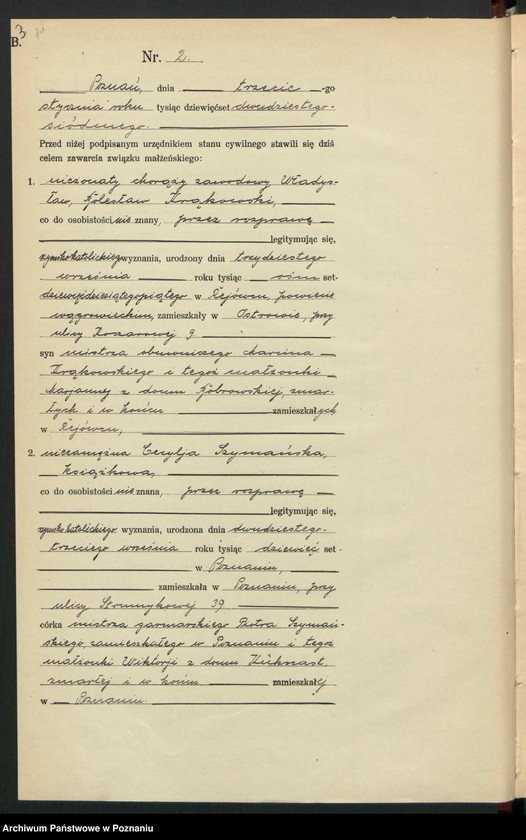 3
B.
Nr. 2.
Poznań, dnia trzecie -go
stycznia roku tysiąc dziewięćset dwudziestego-
siódmego.
Przed niżej podpisanym urzędnikiem stanu cywilnego stawili się dziś
celem zawarcia związku małżeńskiego:
1. nieżonaty chorąży zawodowy Władys-
ław, Bolesław Krąkowski,
co do osobistości nie znany, przez rozprawę
legitymując się,
rzymskokatolickiego wyznania, urodzony dnia trzydziestego
września roku tysiąc ośm set-
dziewięćdziesiątegopiątego w powiecie
wągrowieckim, zamieszkały w Ostrowie, przy
ulicy Koszarowej 9
syn mistrza obuwniczego Marcina
Krąkowskiego i tegoż małżonki
Marjanny z domu Kobrowskiej, zmar-
łych i w końcu zamieszkałych
w
2. niezamężna Cecylja Szymańska,
Książkowa,
co do osobistości nie znana, przez rozprawę
legitymując się,
rzymskokatolickiego wyznania, urodzona dnia dwudziestego-
trzeciego września roku tysiąc dziewięć set-
w Poznaniu,
zamieszkała w Poznaniu, przy
ulicy Strumykowej 39
córka mistrza garncarskiego Piotra Szymań-
skiego, zamieszkałego w Poznaniu i tegoż
małżonki Wiktorji z domu
zmarłej i w końcu zamieszkałej
w Poznaniu.
Archiwum Państwowe w Poznaniu